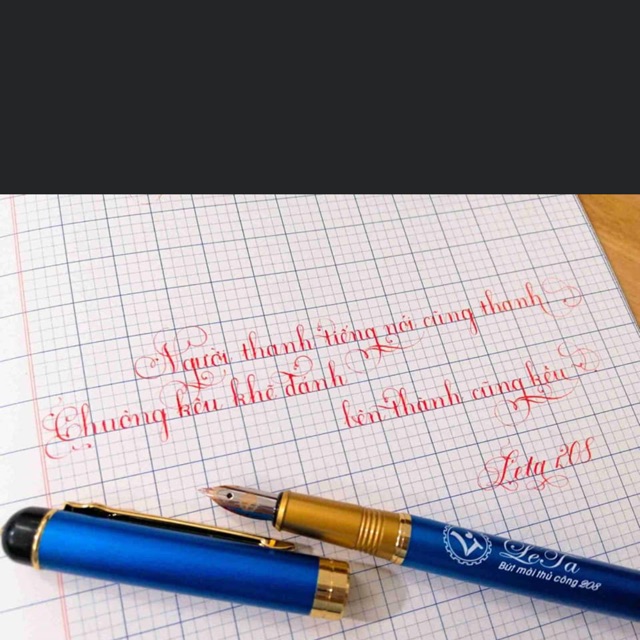 Người thanh tiếng nói cũng thanh
Chuông kêu khẽ đánh
bên thành cũng kêu
Leta 208
LeTa
Bút mài thủ công 208